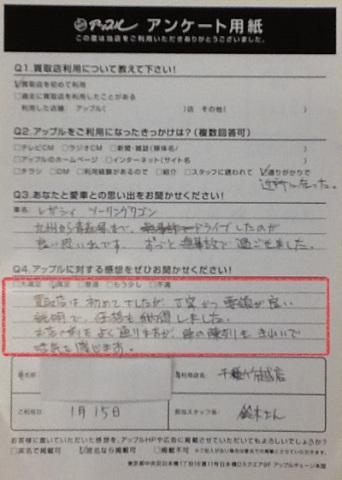 アップル アンケート用紙
この度は当店をご利用いただきありがとうございました。
Q1.買取店利用について教えて下さい!
買取店を初めて利用
過去に買取店を利用したことがある
利用した店舗 アップル( )店 その他( )
Q2.アップルをご利用になったきっかけは?(複数回答可)
テレビCM ラジオCM 新聞・雑誌(媒体名/
アップルのホームページ インターネット(サイト名
チラシ DM 利用経験があるので 紹介 スタッフに誘われて 通りがかりで
近所だった。
Q3.あなたと愛車との思い出をお聞かせください!
車名 レガシィ ツーリングワゴン
九州から青森県まで、ドライブしたのが
思い出です。 ずっと無事故で過ごせました。
Q4.アップルに対する感想をぜひお聞かせください!
大満足 満足 普通 もう少し 不満
買取店は初めてでしたが、丁寧かつ要領が良い
説明で、価格も納得しました。
お店の前をよく通りますが、車の陳列もきれいで
活気を感じます。
氏名 ご利用店名 千種竹越店
ご利用日 1月15日 担当スタッフ名 鈴木さん
お客様に書いていただいた感想を、アップルHPや広告に掲載させていただいてもよろしいでしょうか?
実名で掲載可 匿名なら掲載可 掲載不可
東京都中央区日本橋1丁目16番11号日本橋Dスクエア9F アップルチェーン本部